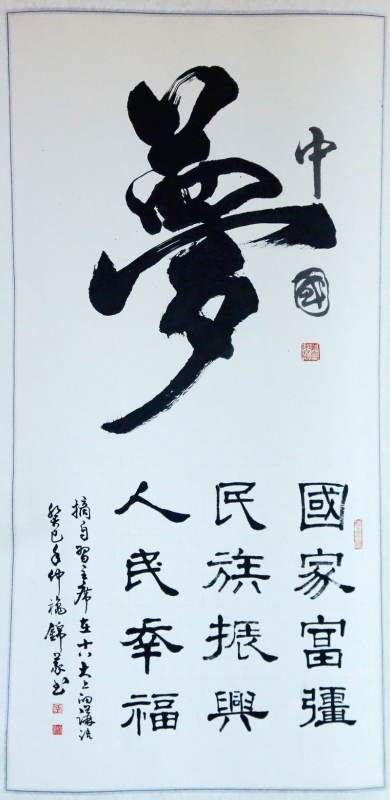 中國
夢
國家富彊
民族振興
人民幸福
摘自習主席在十八大上的講话
癸巳年仲穐錦義书